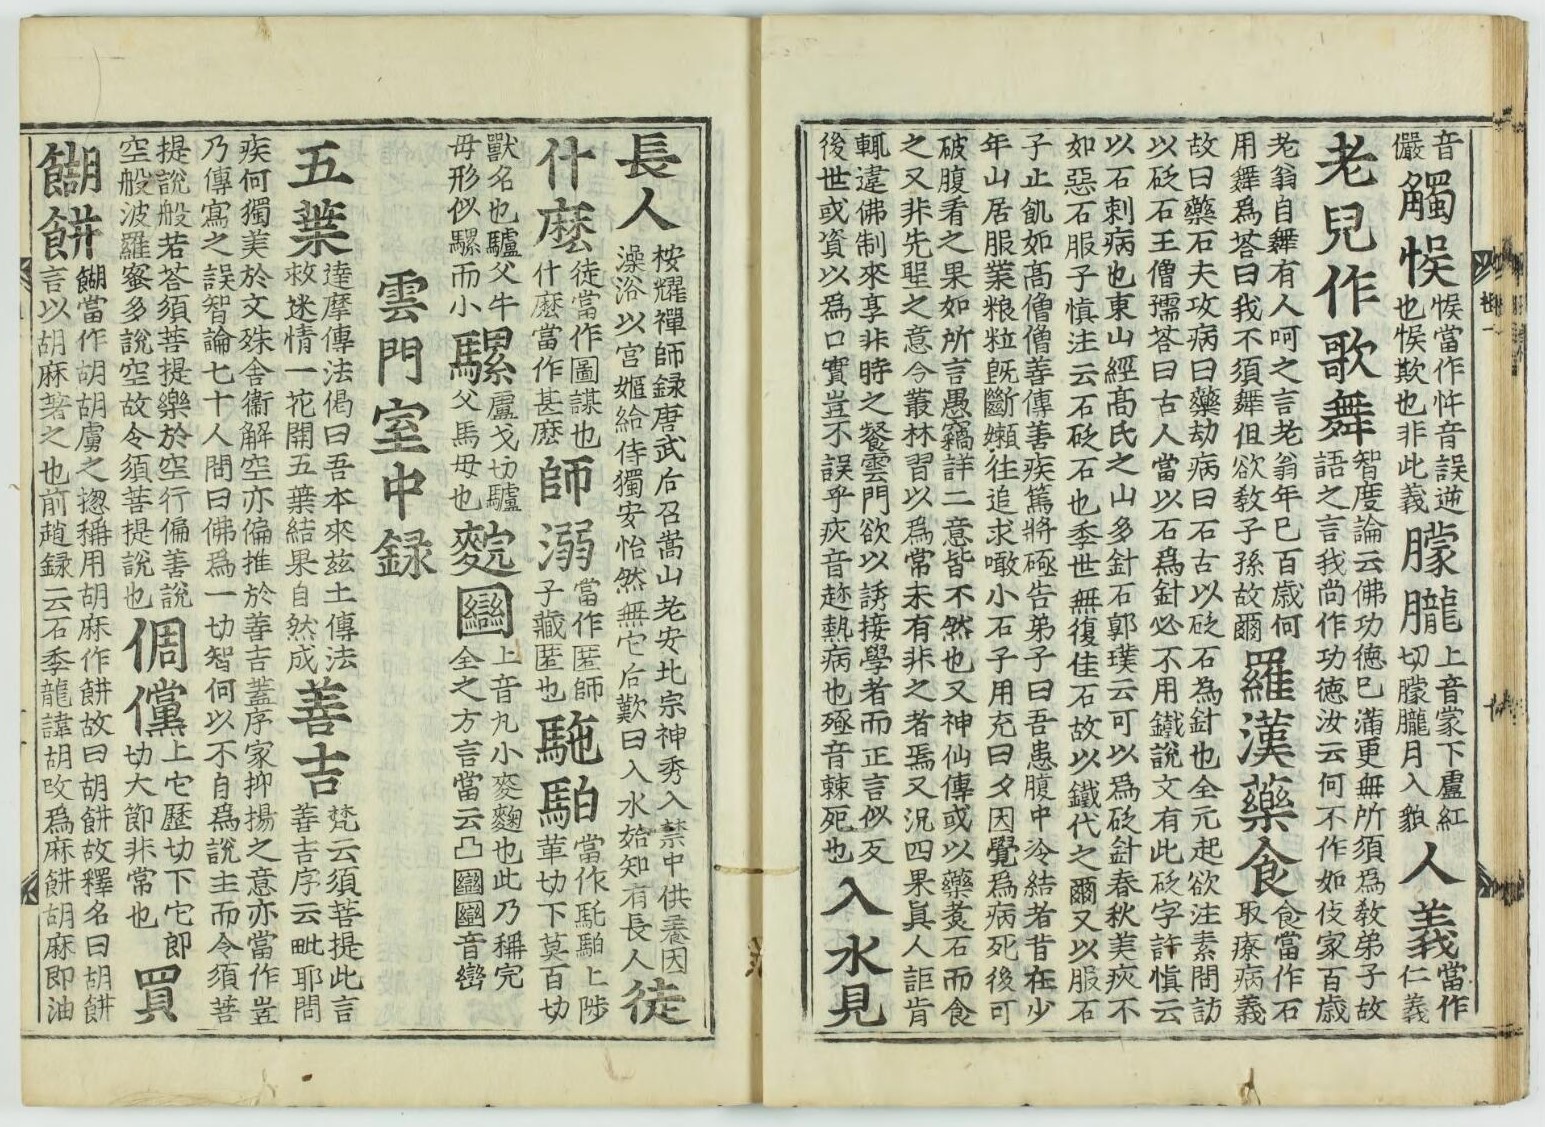 音儼觸悮悮當作忤音誤逆也悮欺也非此義朦朧上音蒙下盧紅切朦朧月入貌人義當作仁義
老兒作歌舞智度論云佛功德已滿更無所須爲教弟子故語之言我尚作功德汝云何不作如伎家百歲
老翁自舞有人呵之言老翁年已百歲何用舞爲荅曰我不須舞但欲教子孫故爾羅漢藥食食當作石取療病義
故曰藥石夫攻病曰藥劫病曰石古以砭石為針也全元起欲注素問訪
以砭石王僧孺荅曰古人當以石爲針必不用鐵說文有此砭字許慎云
以石刺病也東山經高氏之山多針石郭璞云可以爲砭針春秋美疢不
如惡石服子慎注云石砭石也季世無復佳石故以鐵代之爾又以服石
子止飢如高僧僧善傳善疾篤將殛告弟子曰吾患腹中冷結者昔在少
年山居服業粮粒旣斷嬾往追求噉小石子用充日夕因覺爲病死後可
破腹看之果如所言愚竊詳二意皆不然也又神仙傳或以藥煑石而食
之又非先聖之意今叢林習以爲常未有非之者焉又況四果眞人詎肯
輒違佛制來享非時之餐雲門欲以誘接學者而正言似反後世或資以爲口實豈不誤乎疢音趂熱病也殛音棘死也入水見
長人按耀禪師録唐武后召嵩山老安北宗神秀入禁中供養因澡浴以宮姬給侍獨安怡然無它后歎曰入水始知有長人徒
什麽徒當作圖謀也什麽當作甚麽師溺當作匿師子藏匿也駞當作馲上陟革切下莫百切
獸名也驢父牛母形似騾而小騾盧戈切驢父馬母也圞上音丸小麥麴也此乃稱完全之方言當云凸圞圞音巒
雲門室中録
五葉達摩傳法偈曰吾本來茲土傳法救迷情一花開五葉結果自然成善吉梵云須菩提此言善吉序云毗耶問
疾何獨美於文殊舍衞解空亦偏推於善吉蓋序家抑揚之意亦當作豈
乃傳寫之誤智論七十人問曰佛爲一切智何以不自爲說主而令須菩
提說般若荅須菩提樂於空行偏善說空般波羅蜜多說空故令須菩提說也倜儻上它歷切下它郎切大節非常也買
餬餅餬當作胡胡虜之揔稱用胡麻作餅故曰胡餅故釋名曰胡餅言以胡麻著之也前趙録云石季龍諱胡改爲麻餅胡麻即油